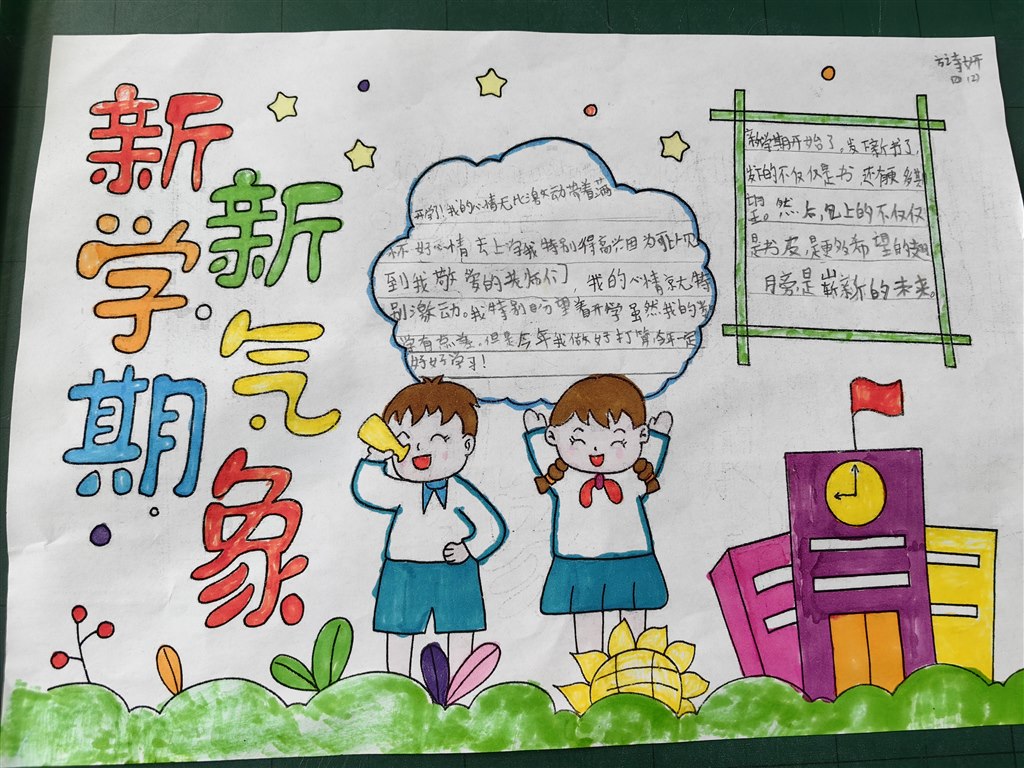 新学期
新气象
诗妍
四(2)
开学!我的心情无比激动带着满
怀好心情去上学我特别得高兴因为马上见
到我敬爱的老师们,我的心情就特
别激动。我特别盼望着开学虽然我的考
但是今年我做好打算今年一定
好好学习!
新学期开始了。发下新书了,
发的不仅仅是书还有更多期
望。然后,包上的不仅仅
是书皮,是更多希望的翅
膀是崭新的未来。